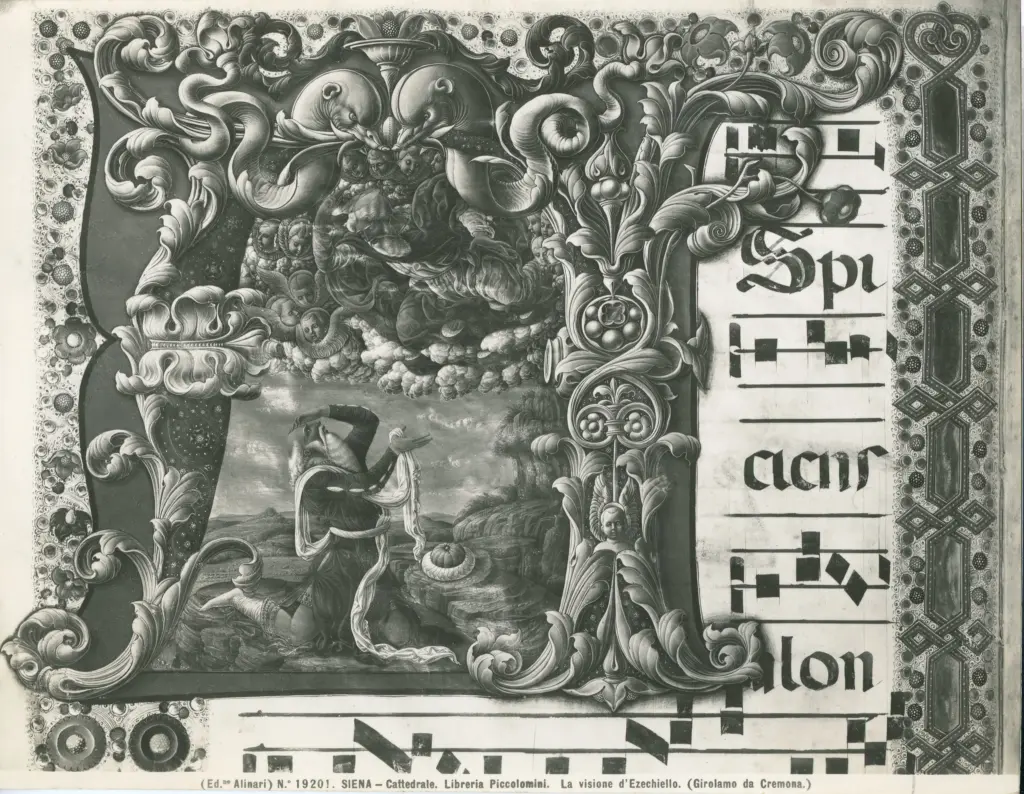 Spi
acins
alon
(Ed.ne Alinari) N.° 19201. SIENA – Cattedrale. Libreria Piccolomini. La visione d'Ezechiello. (Girolamo da Cremona.)